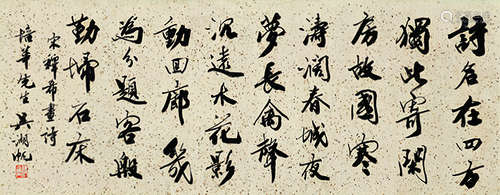 詩名在四方
獨此寄閑
房故國寒
濤闊春城夜
夢長禽聲
沉遠木花影
動回廊幾
為分題客殷
勤埽石床
宋釋希晝詩
培華先生 吳湖帆